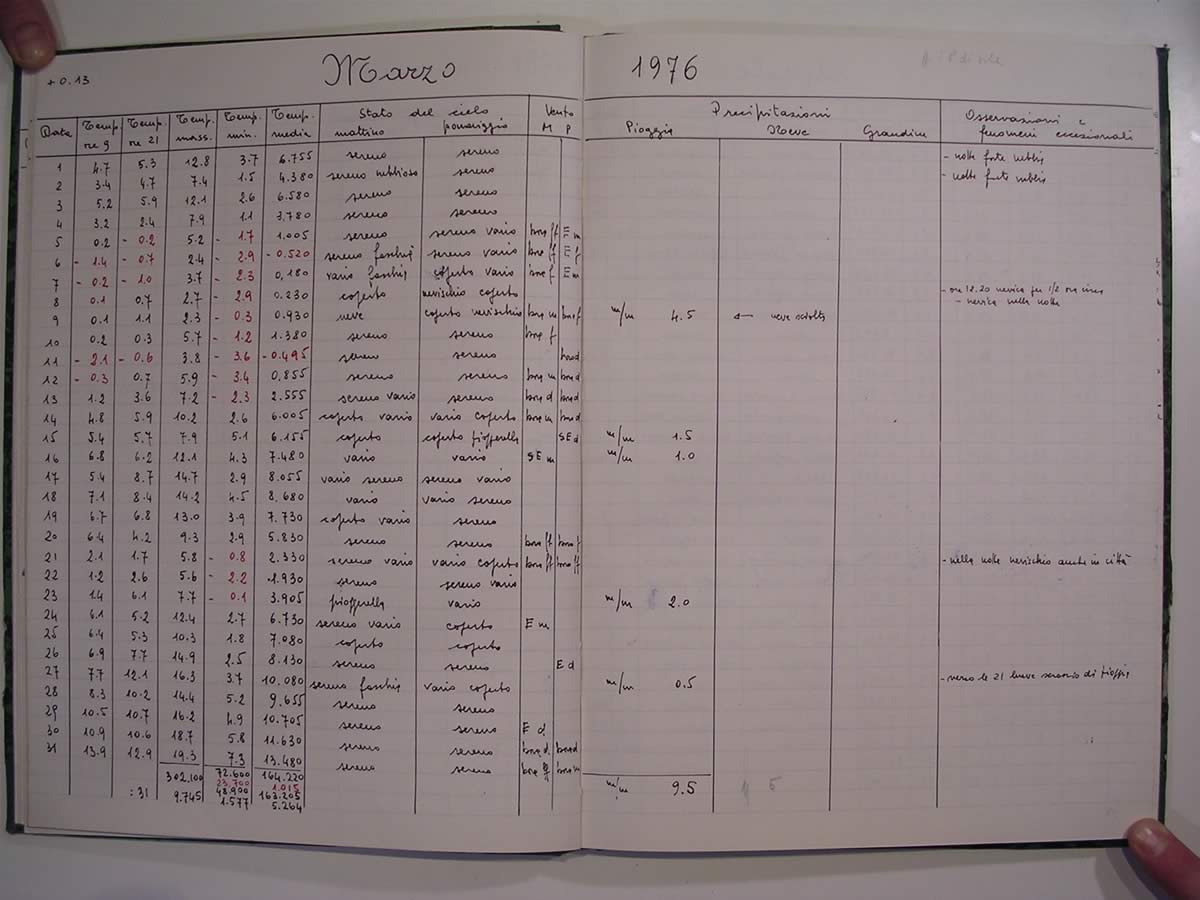 + 0.13 Marzo 1976
Data Temp. ore 9 Temp. ore 21 Temp. mass. Temp. min. Temp. media Stato del cielo mattino pomeriggio Vento M P Precipitazioni Pioggia Neve Grandine Osservazioni e fenomeni eccezionali
1 4.7 5.3 12.8 3.7 6.755 sereno sereno - notte forte nebbia
2 3.4 4.7 7.4 1.5 4.380 sereno nebbioso sereno - notte forte nebbia
3 5.2 5.9 12.1 2.6 6.580 sereno sereno
4 3.2 2.4 7.9 1.1 3.780 sereno sereno
5 0.2 - 0.2 5.2 - 1.7 1.005 sereno sereno vario bora ff E m
6 - 1.4 - 0.7 2.4 - 2.9 - 0.520 sereno foschia sereno vario bora ff E f
7 - 0.2 - 1.0 3.7 - 2.3 0.180 vario foschia coperto vario bora f E m
8 0.1 0.7 2.7 - 2.9 0.230 coperto nevischio coperto - ore 12.20 nevica per 1/2 ora circa
- nevica nella notte
9 0.1 1.1 2.3 - 0.3 0.930 neve coperto nevischio bora m bora f m/m 4.5 ← neve sciolta
10 0.2 0.3 5.7 - 1.2 1.380 sereno sereno bora f
11 - 2.1 - 0.6 3.8 - 3.6 - 0.495 sereno sereno bora d
12 - 0.3 0.7 5.9 - 3.4 0.855 sereno sereno bora m bora d
13 1.2 3.6 7.2 - 2.3 2.555 sereno vario sereno bora d bora d
14 4.8 5.9 10.2 2.6 6.005 coperto vario vario coperto bora m bora d
15 5.4 5.7 7.9 5.1 6.155 coperto coperto pioggerella SE d m/m 1.5
16 6.8 6.2 12.1 4.3 7.480 vario vario SE m m/m 1.0
17 5.4 8.7 14.7 2.9 8.055 vario sereno sereno vario
18 7.1 8.4 14.2 4.5 8.680 vario vario sereno
19 6.7 6.8 13.0 3.9 7.730 coperto vario sereno
20 6.4 4.2 9.3 2.9 5.830 sereno sereno bora ff bora f
21 2.1 1.7 5.8 - 0.8 2.330 sereno vario vario coperto bora ff bora ff - nella notte nevischio anche in città
22 1.2 2.6 5.6 - 2.2 1.930 sereno sereno vario
23 1.4 6.1 7.7 - 0.1 3.905 pioggerella vario m/m 2.0
24 6.1 5.2 12.4 2.7 6.730 sereno vario coperto E m
25 6.4 5.3 10.3 1.8 7.080 coperto coperto
26 6.9 7.7 14.9 2.5 8.130 sereno sereno E d
27 7.7 12.1 16.3 3.7 10.080 sereno foschia vario coperto m/m 0.5 - verso le 21 breve scroscio di pioggia
28 8.3 10.2 14.4 5.2 9.655 sereno sereno
29 10.5 10.7 16.2 4.9 10.705 sereno sereno E d
30 10.9 10.6 18.7 5.8 11.630 sereno sereno bora d bora d
31 13.9 12.9 19.3 7.3 13.480 sereno sereno bora ff bora m
302.100 72.600 164.220 m/m 9.5
23.700 1.015
48.900 163.205
: 31 9.745 1.577 5.264